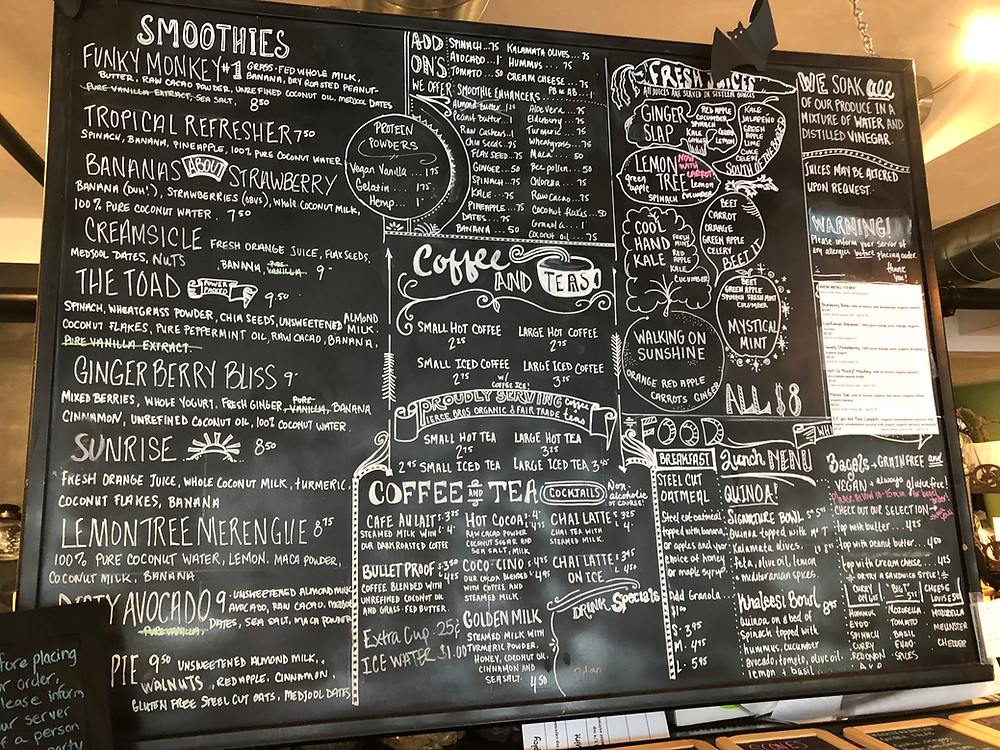 SMOOTHIES
FUNKY MONKEY #1 GRASS-FED WHOLE MILK,
BANANA, DRY ROASTED PEANUT-
BUTTER, RAW CACAO POWDER, UNREFINED COCONUT OIL, MEDJOOL DATES
PURE VANILLA EXTRACT, SEA SALT, 8 50
TROPICAL REFRESHER 7 50
SPINACH, BANANA, PINEAPPLE, 100% PURE COCONUT WATER
BANANAS ABOUT STRAWBERRY
BANANA (DUH!), STRAWBERRIES (OBVS), WHOLE COCONUT MILK,
100% PURE COCONUT WATER. 7 50
CREAMSICLE FRESH ORANGE JUICE, FLAXSEEDS,
MEDJOOL DATES, NUTS BANANA, PURE VANILLA 9-
THE TOAD POWER PACKED 9.50
SPINACH, WHEATGRASS POWDER, CHIA SEEDS, UNSWEETENED ALMOND MILK
COCONUT FLAKES, PURE PEPPERMINT OIL, RAW CACAO, BANANA,
PURE VANILLA EXTRACT.
GINGER BERRY BLISS 9-
MIXED BERRIES, WHOLE YOGURT, FRESH GINGER, PURE VANILLA, BANANA
CINNAMON, UNREFINED COCONUT OIL, 100% COCONUT WATER.
SUNRISE 8 50
FRESH ORANGE JUICE, WHOLE COCONUT MILK, TURMERIC,
COCONUT FLAKES, BANANA
LEMONTREE MERENGUE 8 75
100% PURE COCONUT WATER, LEMON, MACA POWDER,
COCONUT MILK, BANANA
DIRTY AVOCADO 9 UNSWEETENED ALMOND MILK
AVOCADO, RAW CACAO, MEDJOOL
PURE VANILLA, DATES, SEA SALT, MACA POWDER
PIE 9 50 UNSWEETENED ALMOND MILK,
WALNUTS, RED APPLE, CINNAMON,
GLUTEN FREE STEEL CUT OATS, MEDJOOL DATES
fore placing
order,
lease inform
ur server
f a person
party
ADD ON'S
SPINACH...75 KALAMATA OLIVES...75
AVOCADO...1- HUMMUS...75
TOMATO...50 CREAM CHEESE...75
PB or AB...1-
WE OFFER SMOOTHIE ENHANCERS
Almond butter...1 25 Aloe Vera...75
Peanut Butter...1 Elderberry...75
Raw Cashews...1 Turmeric...75
Chia Seeds...75 Wheatgrass...75
FLAX SEED...75 Maca...50
GINGER...50 Bee pollen...50
SPINACH...75 CHLORELLA...75
KALE...75 RAW CACAO...75
PINEAPPLE...75 Coconut flakes...50
DATES...75 Granola...1
BANANA...50 Coconut oil...75
PROTEIN POWDERS
Vegan Vanilla...1 75
Gelatin...1 75
Hemp...1
Coffee AND TEAS
SMALL HOT COFFEE 2 25 LARGE HOT COFFEE 2 75
SMALL ICED COFFEE 2 75 LARGE ICED COFFEE 3 25
W/ COFFEE ICE!
PROUDLY SERVING coffee
PIERCE BROS ORGANIC & FAIR TRADE tea
SMALL HOT TEA 2 75 LARGE HOT TEA 3 25
2 95 SMALL ICED TEA LARGE ICED TEA 3 45
COFFEE AND TEA COCKTAILS Non-alcoholic OF COURSE!
CAFE AU LAIT S: 3 25 L: 4
STEAMED MILK WITH
OUR DARK ROASTED COFFEE
BULLET PROOF S: 3 50 L: 4 50
COFFEE BLENDED WITH
UNREFINED COCONUT OIL
AND GRASS-FED BUTTER.
Extra Cup 25¢
ICE WATER $1.00
HOT COCOA
RAW CACAO POWDER
COCONUT SUGAR AND
SEA SALT, MILK
COCO-CINO
OUR COCOA BLENDED
WITH COFFEE AND
STEAMED MILK.
GOLDEN MILK
STEAMED MILK WITH
TURMERIC POWDER,
HONEY, COCONUT OIL
CINNAMON AND
SEA SALT. 4 50
CHAI LATTE
CHAI TEA WITH
STEAMED MILK.
CHAI LATTE
ON ICE
DRINK Specials
FRESH JUICES
ALL JUICES ARE SERVED IN SIXTEEN OUNCES
GINGER SLAP
RED APPLE
CUCUMBER
SPINACH
KALE
GINGER
LEMON
KALE
JALAPEÑO
GREEN APPLE
LIME
CUKE
CELERY
SOUTH OF THE BORDER
LEMON TREE
NOW WITH CARROT!
green apple
lemon
cucumber
SPINACH
BEET
CARROT
ORANGE
GREEN APPLE
CELERY
BEET IT
COOL HAND KALE
FRESH MINT
RED APPLE
KALE
CUCUMBER
BEET
GREEN APPLE
SPINACH FRESH MINT
CUCUMBER
MYSTICAL MINT
WALKING ON SUNSHINE
ORANGE RED APPLE
CARROTS GINGER
ALL $8
WE SOAK all
OF OUR PRODUCE IN A
MIXTURE OF WATER AND
DISTILLED VINEGAR.
JUICES MAY BE ALTERED
UPON REQUEST.
WARNING!
Please inform your server of
any allergies before placing order.
thank you!
NEW MENU ITEMS!
FOOD
BREAKFAST
STEEL CUT
OATMEAL
Steel cut oatmeal
topped with banana
or apples and your
choice of honey
or maple syrup.
Add Granola
1.00
S- 3.95
M- 4.95
L- 5.95
Lunch MENU
QUINOA!
SIGNATURE BOWL
Quinoa topped with
Kalamata olives,
feta, olive oil, lemon
+ mediterranean spices.
Khaleesi Bowl 8 95
Quinoa on a bed of
Spinach topped with
hummus, cucumber
avocado, tomato, olive oil,
lemon & basil
Bagels - GRAIN FREE and
VEGAN + always gluten free!
CHECK OUT OUR SELECTION
top with butter...4 25
top with peanut butter...
top with cream cheese...4 50
OR TRY A SANDWICH STYLE
CURRY ME UP!
HUMMUS
EVOO
SPINACH
CURRY
RED ONION
AVO
BIG "T"
MOZZARELLA
TOMATO
BASIL
EVOO
SPICES
CHEESE LOUISE
MOZZARELLA
MUENSTER
CHEDDAR